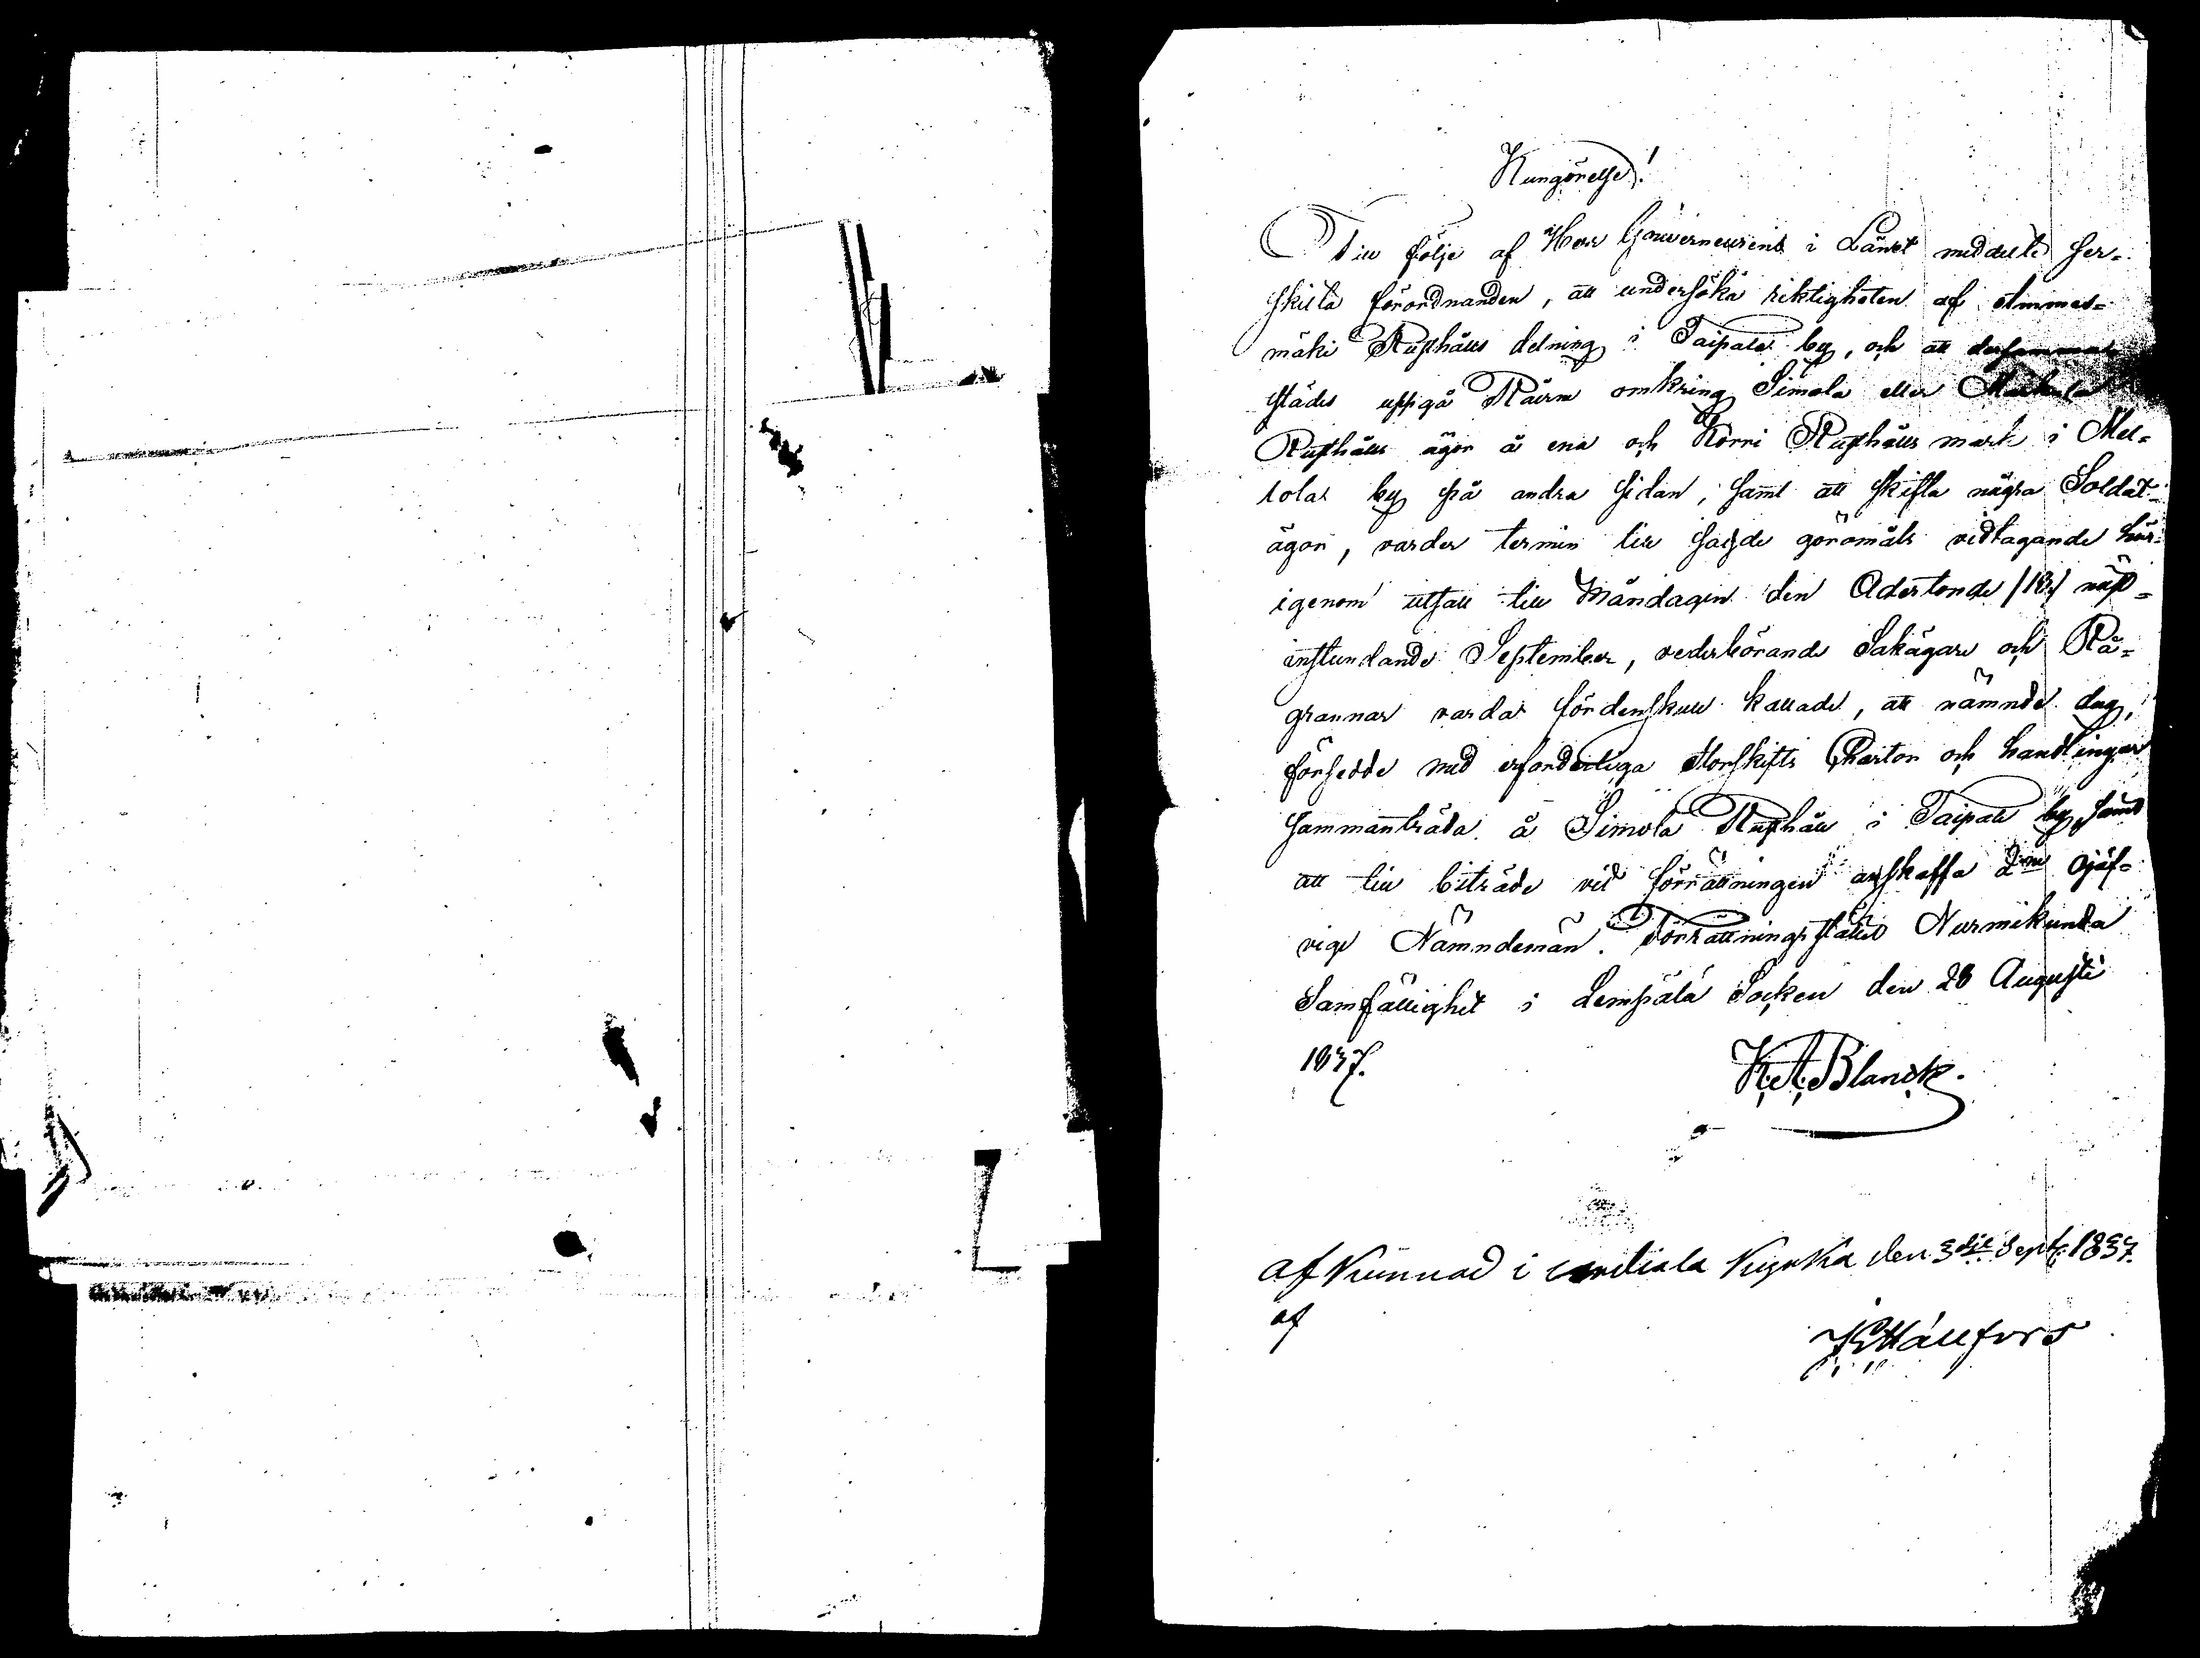 Kungörelse!
Till följe af Herr Gouverneurens i Länet meddelte sär-
skilta förordnanden, att undersöka riktigheten af Ammes-
mäki Rusthålls delning i Taipale by, och att
städes uppgå Råerne omkring Simola eller Markula
Rusthålls ägor å ena och Körri Rusthålls mark i Mel-
tola by på andra sidan, samt att skifta några Soldat-
ägor, varder termin till sagde göromåls vidtagande här-
igenom utsatt till Måndagen den Adertonde /18/ näst-
instundande September, vederbörande Sakägare och Rå-
grannar varda fördenskull kallade, att nämnde dag,
försedde med erforderliga Storskifts Chartor och handlingar
sammanträda å Simola Rusthåll i Taipale by, samt
att till biträde vid förrättningen anskaffa 2ne ojäf-
vige Nämndemän. Förrättningsstället Nurmikunda
Samfällighet i Lempälä Socken den 28 Augusti
1837.
K. A. Blanck.
Afkunnad i Kyrka den 3dje Sept: 1837.
af
Hällfors